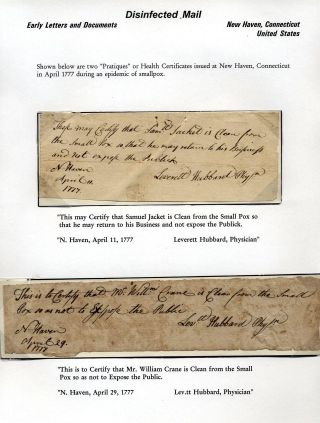 Disinfected Mail
Early Letters and Documents
New Haven, Connecticut
United States
Shown below are two "Pratiques" or Health Certificates issued at New Haven, Connecticut
in April 1777 during an epidemic of smallpox.
These may Certify that Samll Jacket is Clean from
the Small Pox so that he may return to his Business
and not expose the Publick
N Haven
April 11
1777.
Leverett Hubbard Physn
"This may Certify that Samuel Jacket is Clean from the Small Pox so
that he may return to his Business and not expose the Publick.
"N. Haven, April 11, 1777
Leverett Hubbard, Physician"
This is to Certify that Mr. Willm Crane is Clean from the Small
Pox so as not to Expose the Public
N Haven
April 29.
1777
Levtt Hubbard Physn
"This is to Certify that Mr. William Crane is Clean from the Small
Pox so as not to Expose the Public.
"N. Haven, April 29, 1777
Lev.tt Hubbard, Physician"